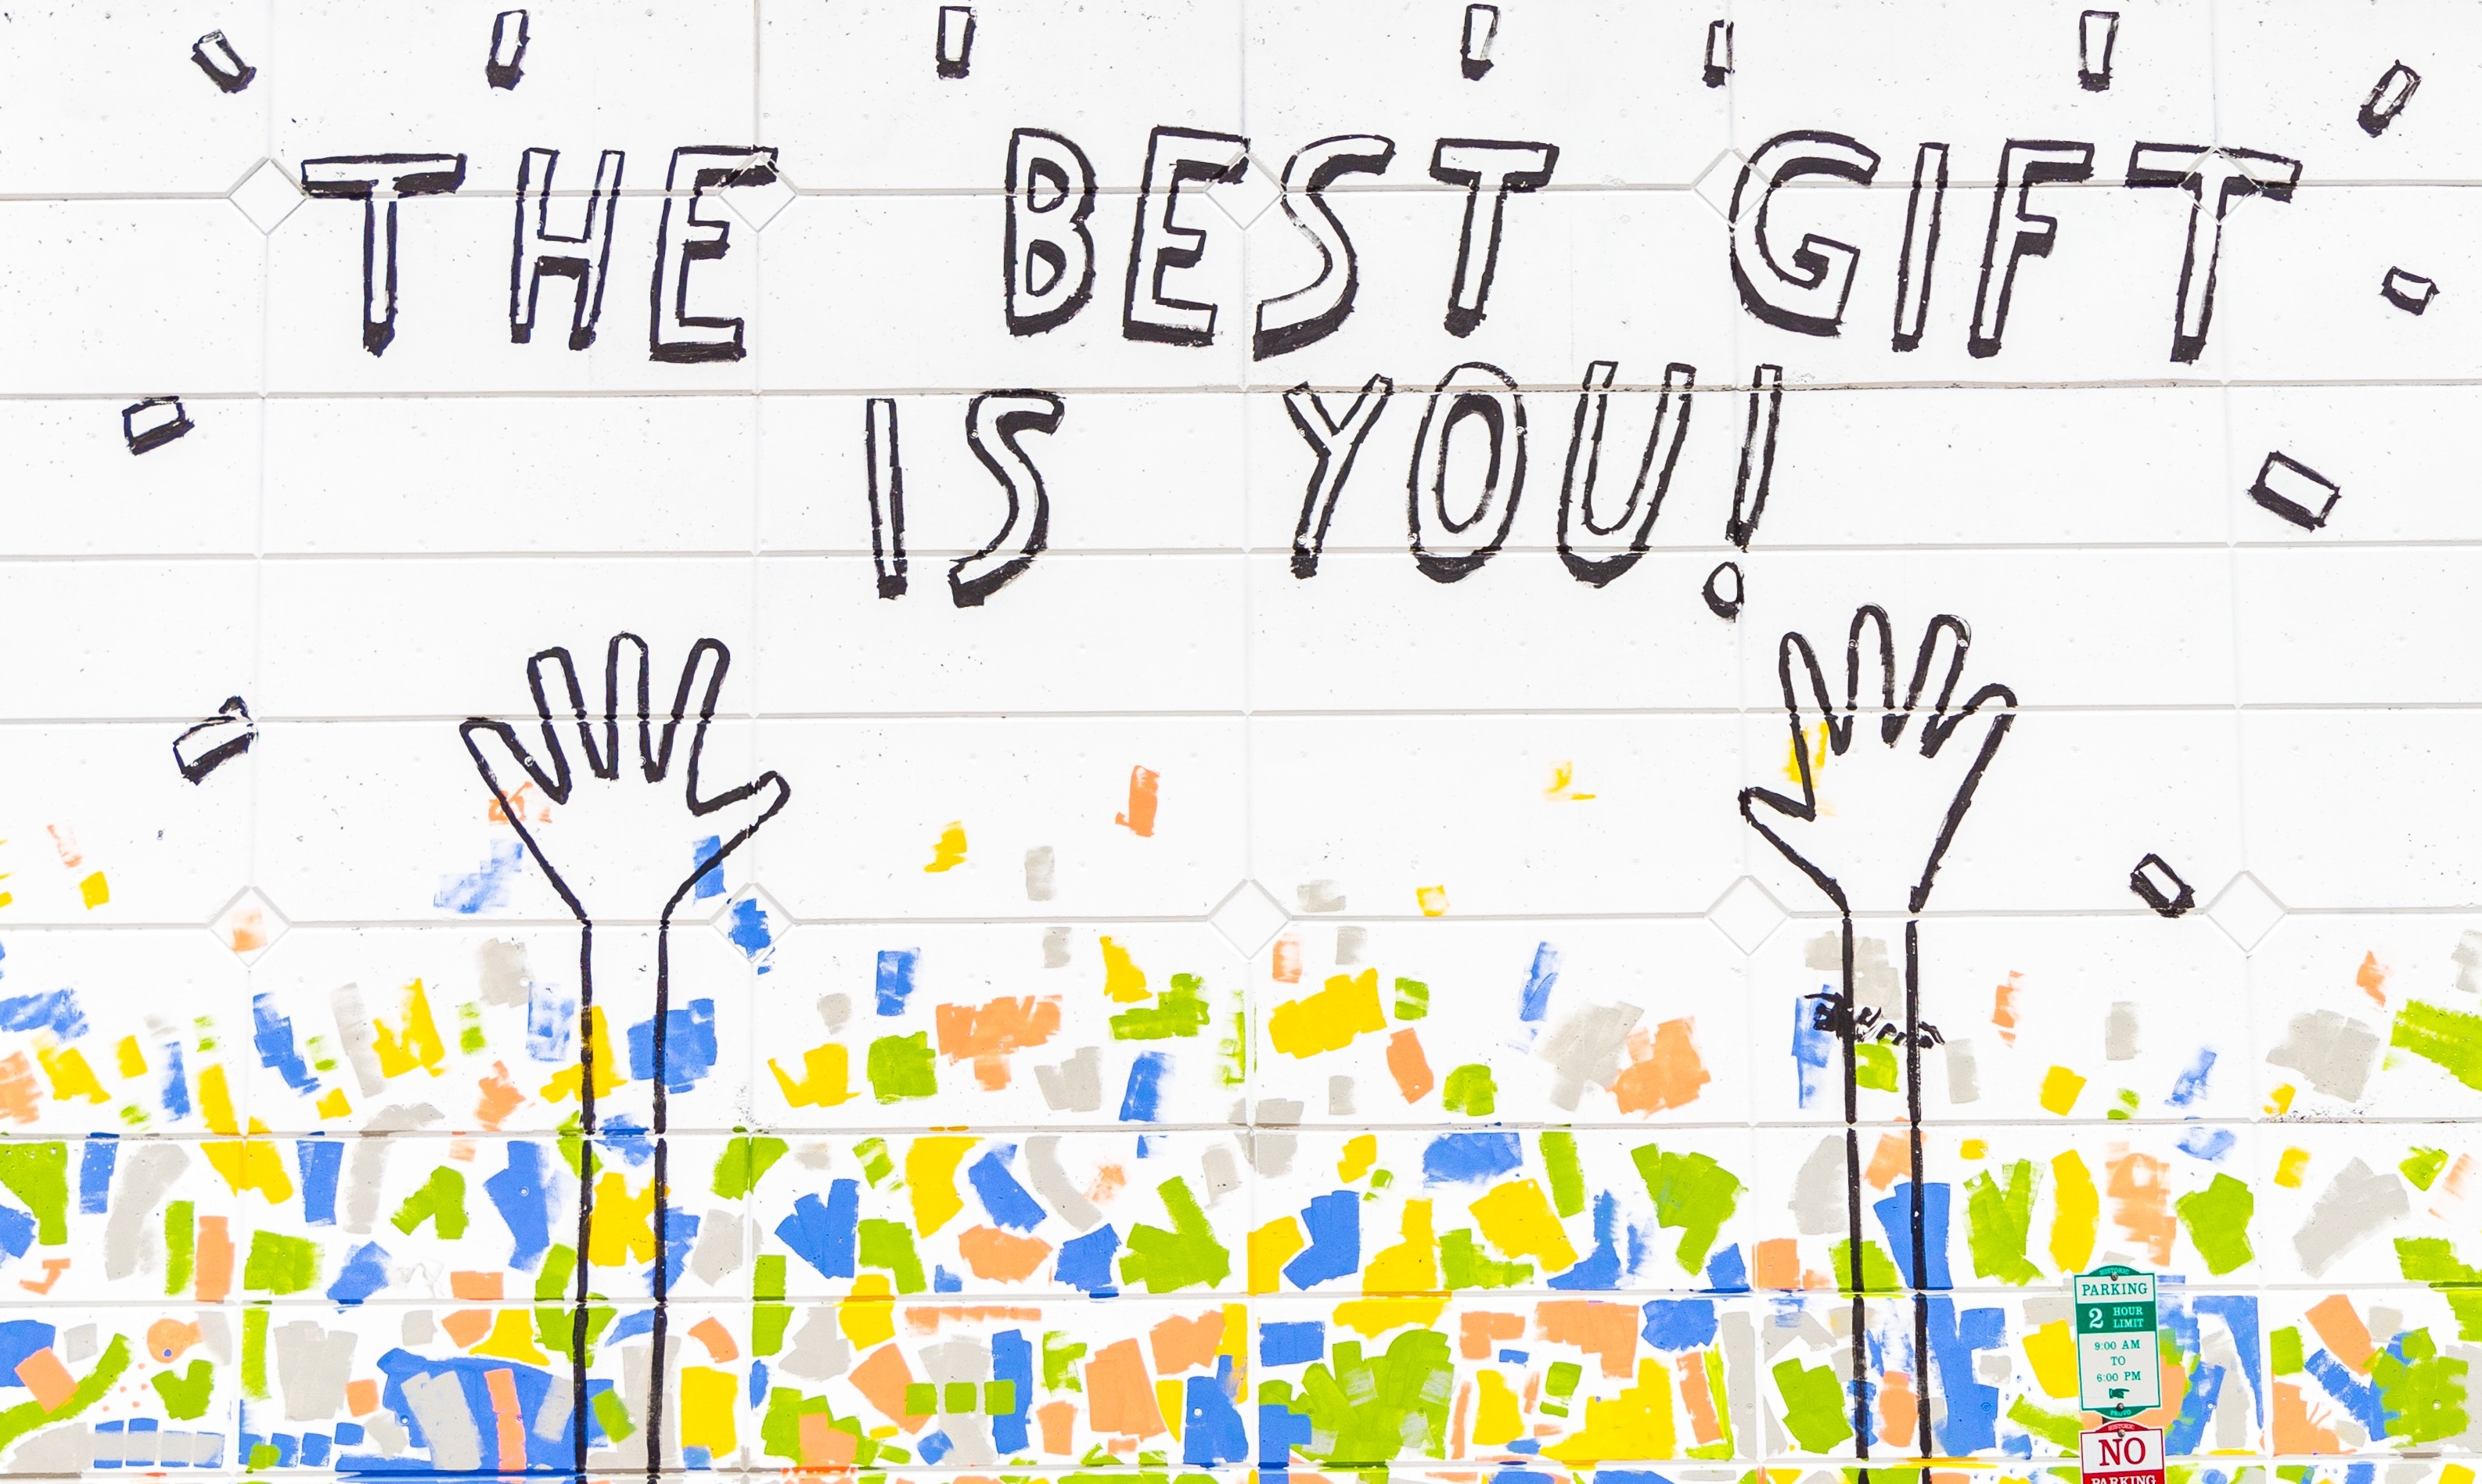 THE BEST GIFT
IS YOU!
HISTORIC
PARKING
2 HOUR
LIMIT
9:00 AM
TO
6:00 PM
PROVO
HISTORIC
NO
PARKING